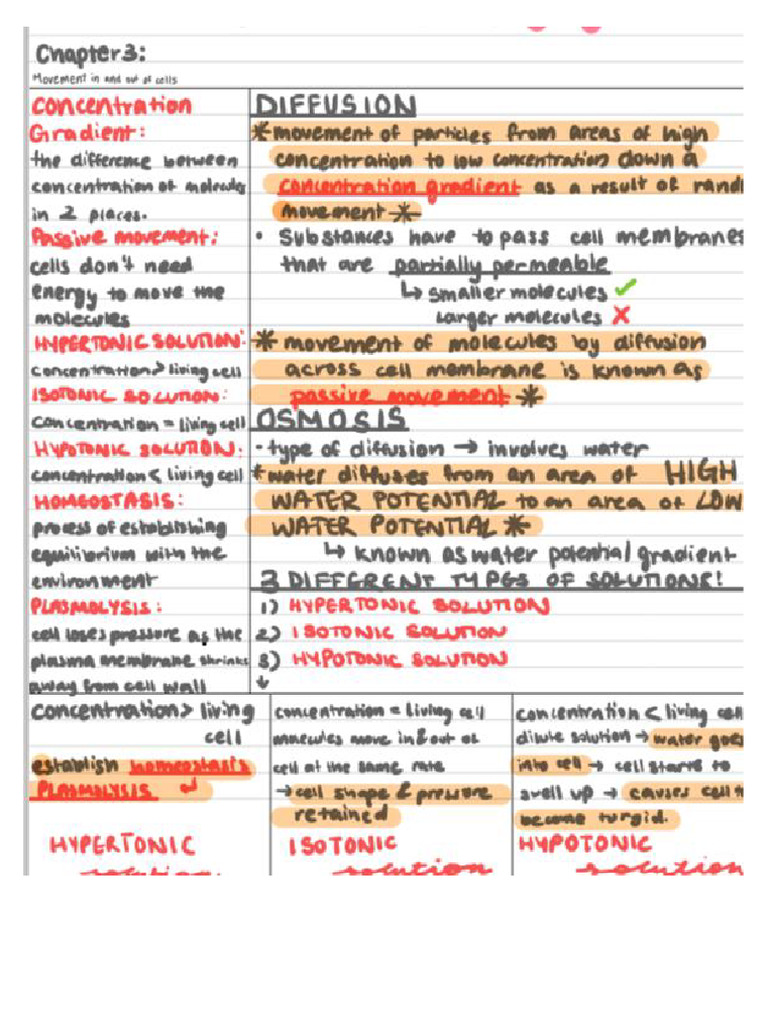 Chapter 3:
Movement in and out of cells
Concentration
Gradient:
the difference between
concentration of molecules
in 2 places.
Passive movement:
cells don't need
energy to move the
molecules
HYPERTONIC SOLUTION:
concentration > living cell
ISOTONIC SOLUTION:
concentration = living cell
HYPOTONIC SOLUTION:
concentration < living cell
HOMEOSTASIS:
process of establishing
equilibrium with the
environment
PLASMOLYSIS:
cell loses pressure as the
plasma membrane shrinks
away from cell wall
DIFFUSION
* movement of particles from areas of high
concentration to low concentration down a
concentration gradient as a result of rand
movement *
• Substances have to pass cell membranes
that are partially permeable
↳ smaller molecules ✓
larger molecules X
* movement of molecules by diffusion
across cell membrane is known as
passive movement *
OSMOSIS
- type of diffusion → involves water
* water diffuses from an area of HIGH
WATER POTENTIAL to an area of LOW
WATER POTENTIAL *
↳ known as water potential gradient
3 DIFFERENT TYPES OF SOLUTIONS!
1) HYPERTONIC SOLUTION
2) ISOTONIC SOLUTION
3) HYPOTONIC SOLUTION
↓
concentration > living
cell
establish homeostasis
PLASMOLYSIS
HYPERTONIC
solution
concentration = living cell
molecules move in & out of
cell at the same rate
→ cell shape & pressure
retained
ISOTONIC
solution
concentration < living cell
dilute solution → water goes
into cell → cell starts to
swell up → causes cell t
become turgid.
HYPOTONIC
solution